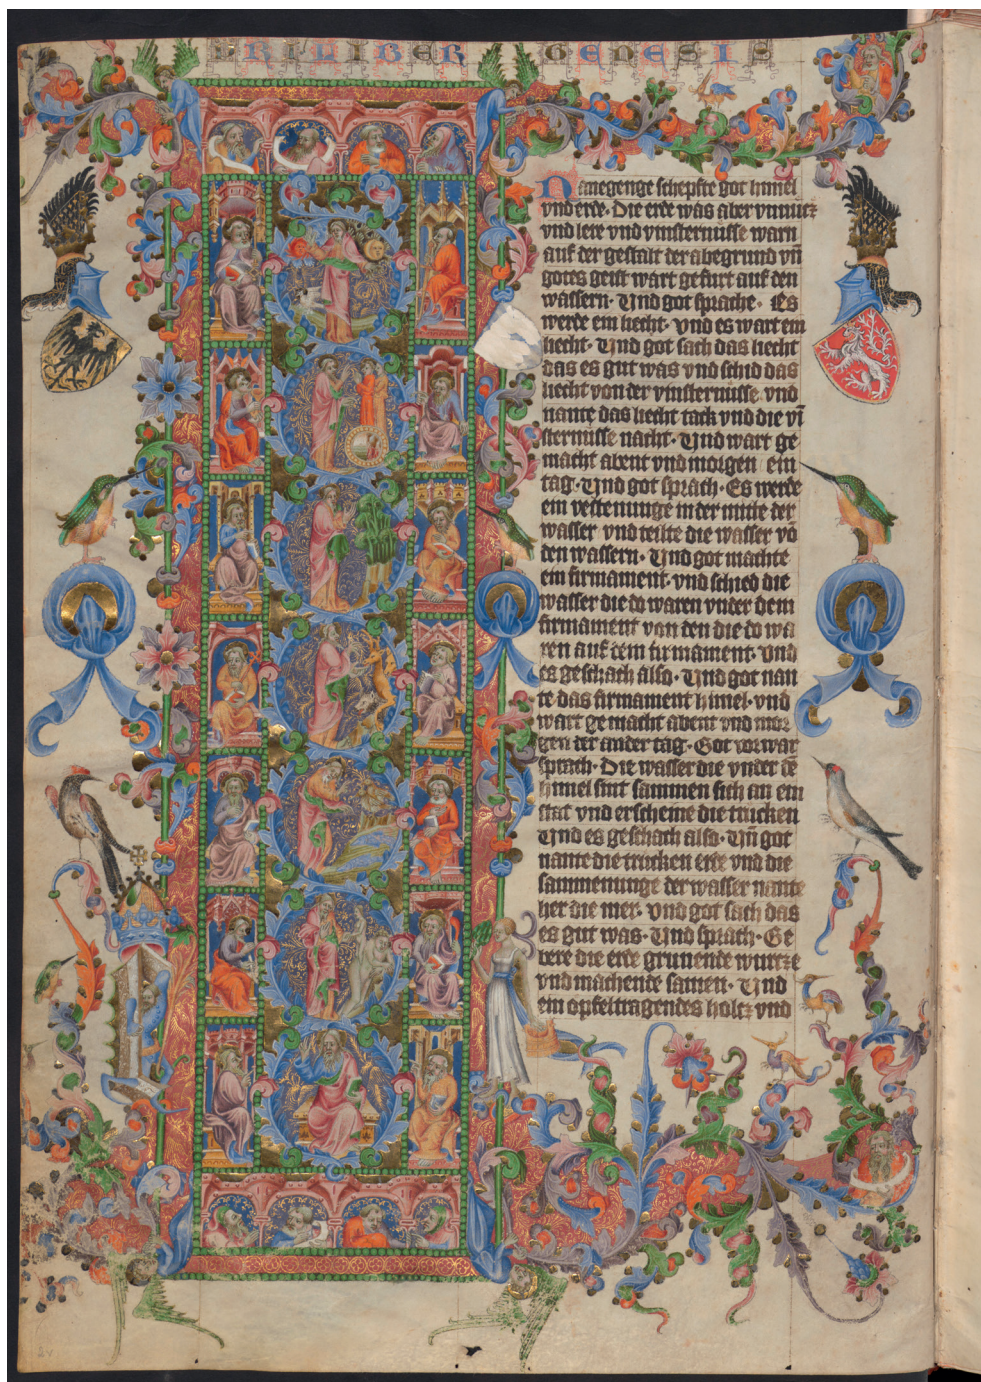 RI LIBER GENESIS
Nanegenge schepfte got himel
vnd erde. Die erde was aber vnnucz
vnd lere vnd vinsternusse warn
auf der gestalt der abegrund vn̄
gotes geist wart gefurt auf den
wassern. Vnd got sprache. Es
werde ein liecht. vnd es wart ein
liecht. Vnd got sach das liecht
das es gut was vnd schid das
liecht von der vinsternusse vnd
nante das liecht tack vnd die vī
sternusse nacht. Vnd wart ge
macht abent vnd morgen ein
tag. Vnd got sprach. Es werde
ein vestenunge in der mitte der
wasser vnd teilte die wasser vō
den wassern. Vnd got machte
ein firmament. vnd schied die
wasser die do waren vnder dem
firmament von den die do wa
ren auf dem firmament. vnd
es geschach also. Vnd got nan
te das firmament himel. vnd
wart gemacht abent vnd mor
gen der ander tag. Got vorwar
sprach. Die wasser die vnder dē
himel sint sammen sich an ein
stat vnd erscheine die trucken
Vnd es geschach also. Vn̄ got
nante die trucken erde vnd die
sammenunge der wasser nante
her die mer. vnd got sach das
es gut was. Vnd sprach. Ge
bere die erde grunende wurcze
vnd machende samen. Vnd
ein opfeltragendes holcz vnd